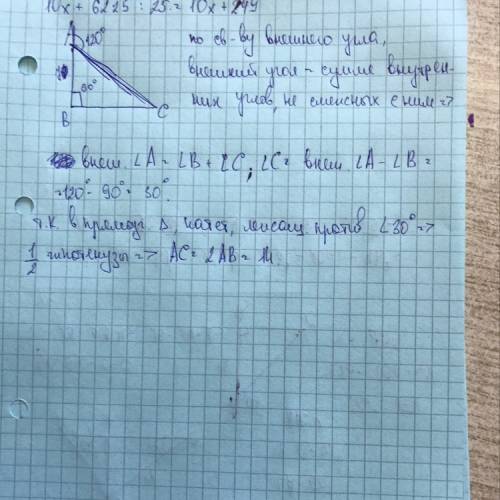 10x + 6225 : 25 = 10x + 249
A 120°
90°
B
C
по св-ву внешнего угла,
внешний угол - сумме внутрен-
них углов, не смежных с ним =>
внеш. ∠A = ∠B + ∠C; ∠C = внеш ∠A - ∠B =
= 120° - 90° = 30°.
т.к. в прямоуг. Δ, катет, лежащ против ∠30° =>
1/2 гипотенузы => AC = 2AB = 14